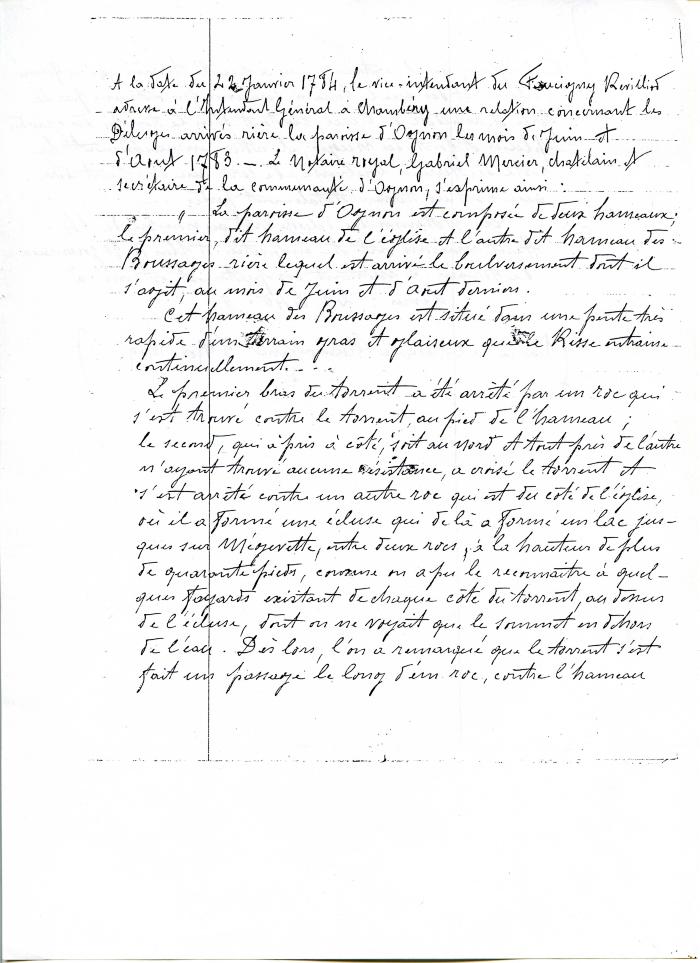 A la date du 22 Janvier 1784, le vice-intendant du Faucigny Révilliod
adresse à l'Intendant Général à Chambéry une relation concernant les
Déluges arrivés rière la paroisse d'Ognon les mois de Juin et
d'Aout 1783. — Le Notaire royal, Gabriel Mercier, chatelain et
secrétaire de la communauté d'Ognon, s'exprime ainsi :
" La paroisse d'Ognon est composée de deux hameaux;
le premier, dit hameau de l'église et l'autre dit hameau des
Boussages rière lequel est arrivé le boulversement dont il
s'agit, au mois de Juin et d'Aout dernier.
Cet hameau des Boussages est situé dans une pente très
rapide d'un terrain gras et glaiseux que le Risse entraine
continuellement - - -
Le premier bras du torrent a été arrêté par un roc qui
s'est trouvé contre le torrent, au pied de l'hameau ;
le second, qui à pris à côté, soit au nord et tout près de l'autre
n'ayant trouvé aucune résistance, a croisé le torrent et
s'est arrêté contre un autre roc qui est du côté de l'église,
où il a formé une écluse qui de là a formé un lac jus-
ques sur Mégevette, entre deux rocs, à la hauteur de plus
de quarante pieds, comme on a pu le reconnaître à quel-
ques fayards existant de chaque côté du torrent, au dessus
de l'écluse, dont on ne voyait que le sommet en dehors
de l'eau. Dès lors, l'on a remarqué que le torrent s'est
fait un passage le long d'un roc, contre l'hameau